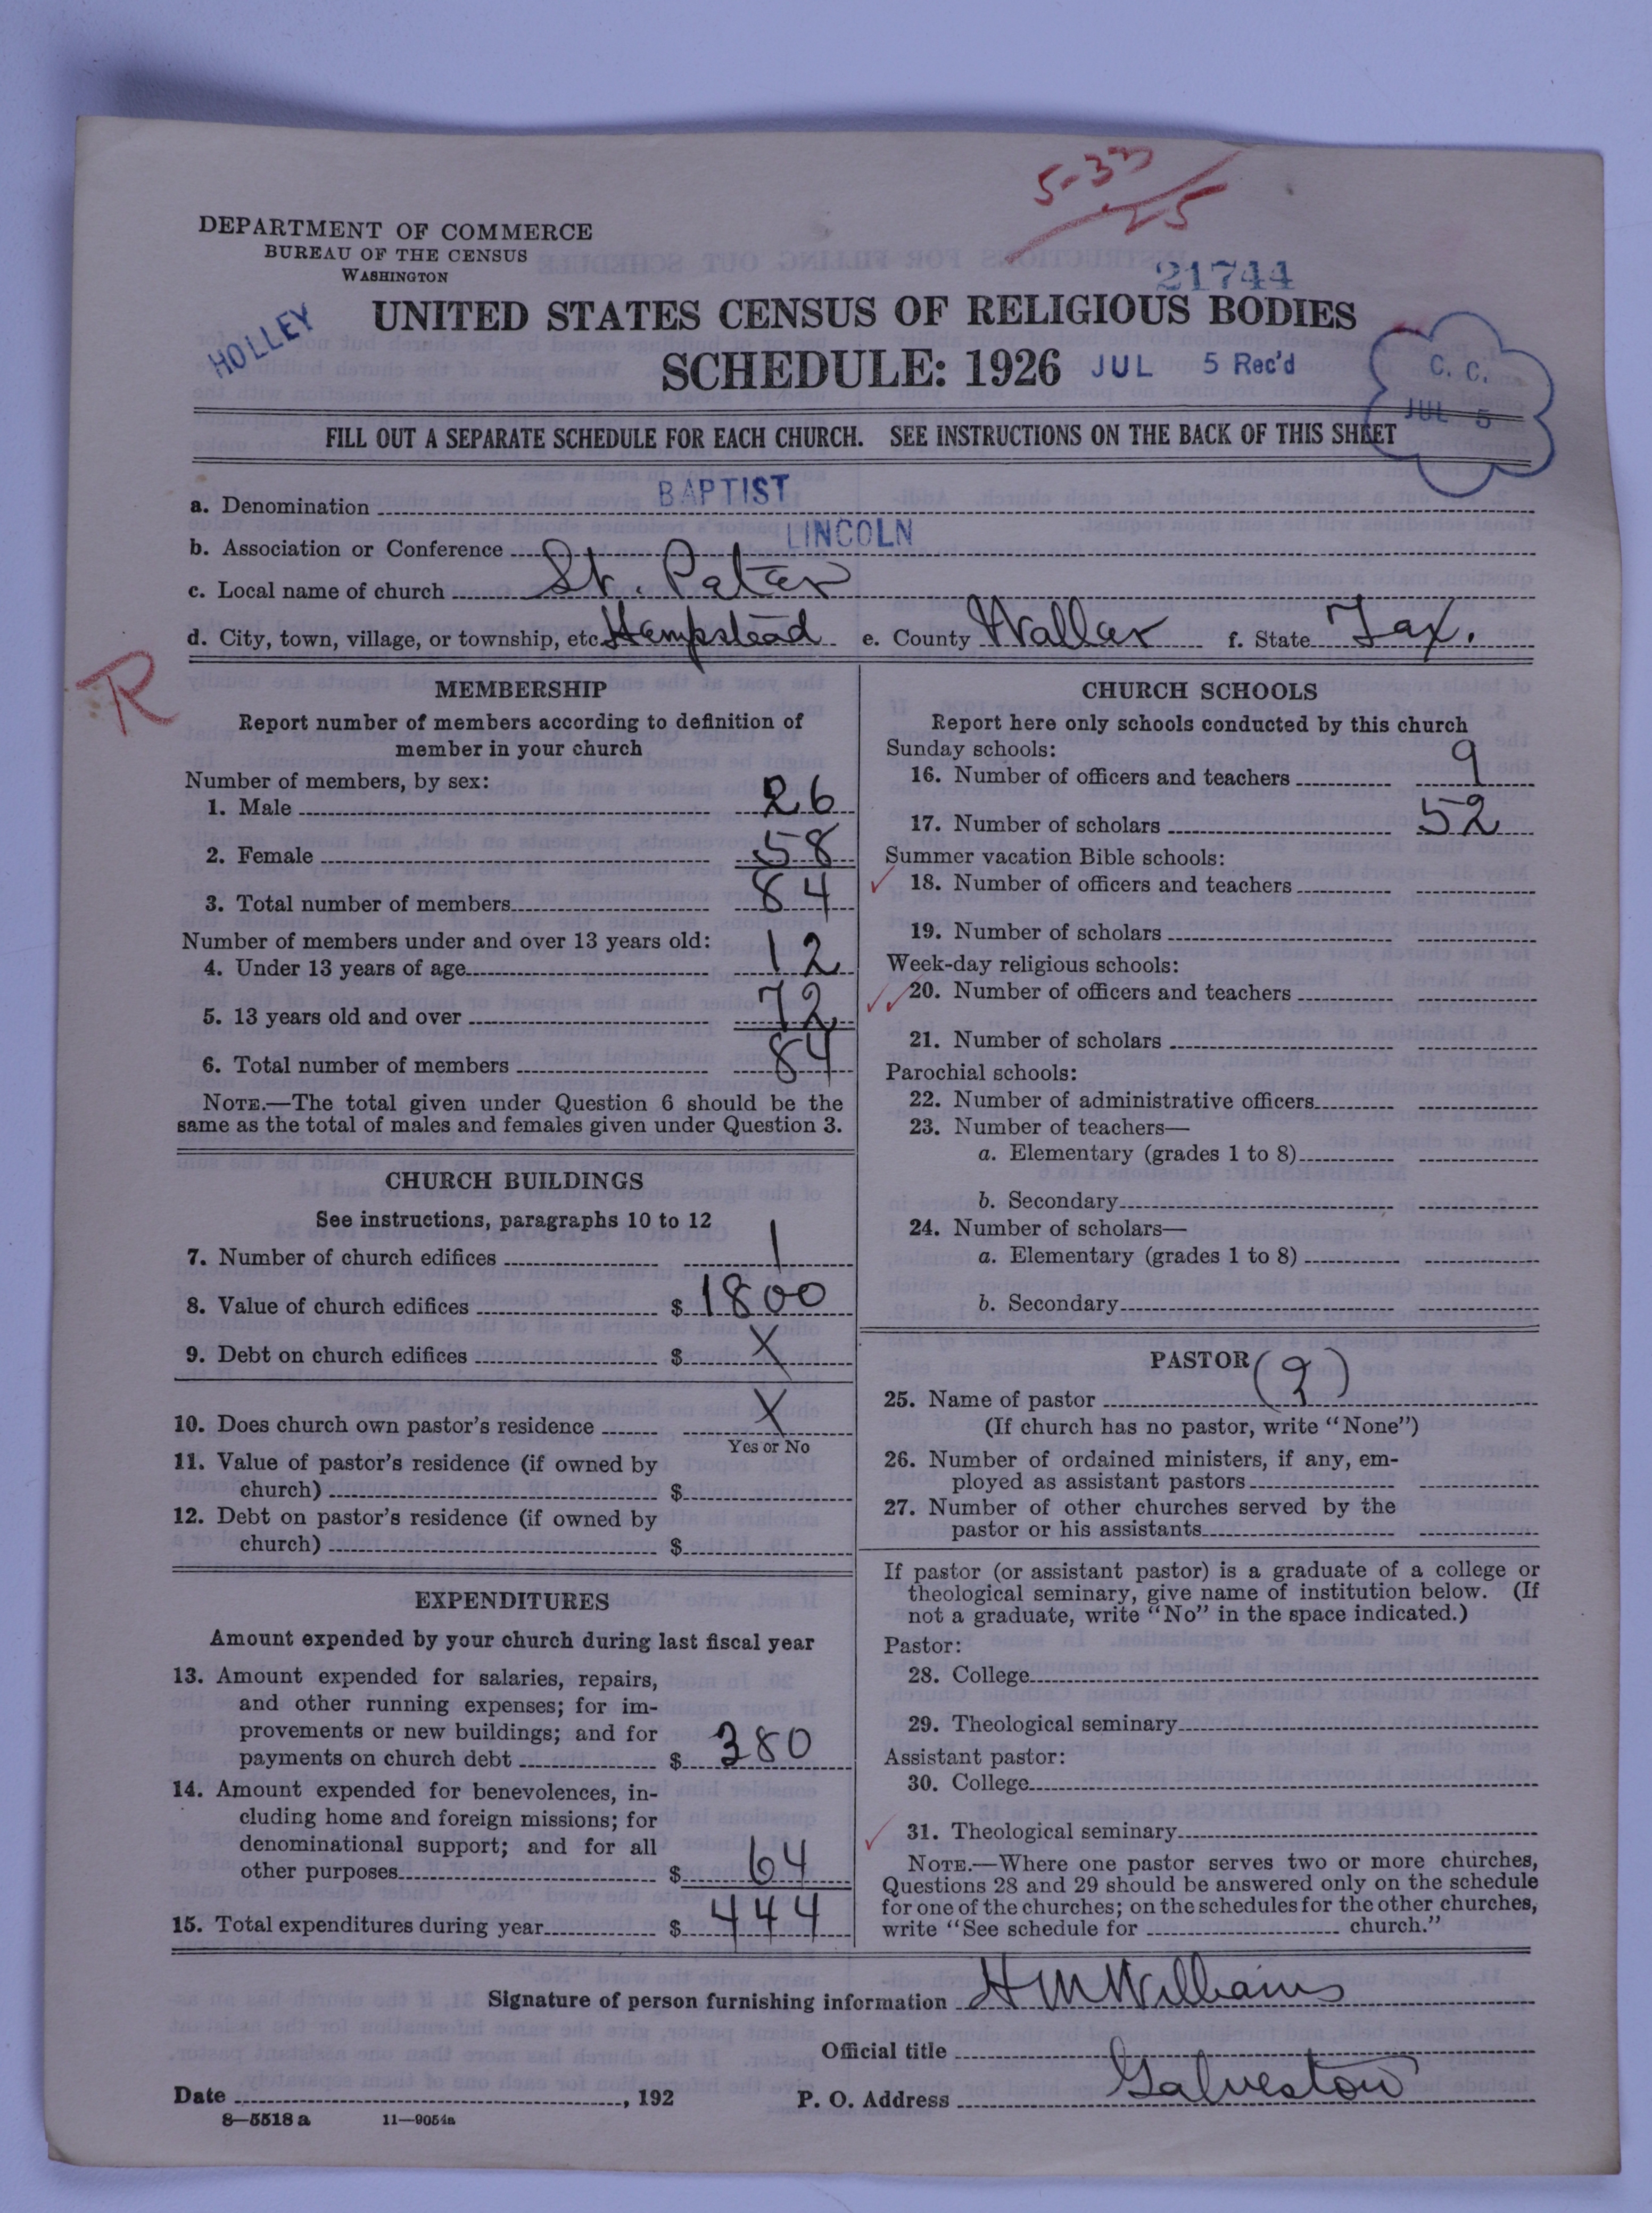 5-33
25
DEPARTMENT OF COMMERCE
BUREAU OF THE CENSUS
WASHINGTON
21744
HOLLEY
UNITED STATES CENSUS OF RELIGIOUS BODIES
SCHEDULE: 1926
JUL 5 Rec'd
C. C.
JUL 5
FILL OUT A SEPARATE SCHEDULE FOR EACH CHURCH. SEE INSTRUCTIONS ON THE BACK OF THIS SHEET
a. Denomination BAPTIST
b. Association or Conference LINCOLN
c. Local name of church St. Peter
d. City, town, village, or township, etc. Hempstead e. County Waller f. State Tex.
R
MEMBERSHIP
Report number of members according to definition of
member in your church
Number of members, by sex:
1. Male 26
2. Female 58
3. Total number of members 84
Number of members under and over 13 years old:
4. Under 13 years of age 12
5. 13 years old and over 72
6. Total number of members 84
NOTE.—The total given under Question 6 should be the
same as the total of males and females given under Question 3.
CHURCH BUILDINGS
See instructions, paragraphs 10 to 12
7. Number of church edifices 1
8. Value of church edifices $ 1800
9. Debt on church edifices $ X
10. Does church own pastor's residence X
Yes or No
11. Value of pastor's residence (if owned by
church) $
12. Debt on pastor's residence (if owned by
church) $
EXPENDITURES
Amount expended by your church during last fiscal year
13. Amount expended for salaries, repairs,
and other running expenses; for im-
provements or new buildings; and for
payments on church debt $ 380
14. Amount expended for benevolences, in-
cluding home and foreign missions; for
denominational support; and for all
other purposes $ 64
15. Total expenditures during year $ 444
CHURCH SCHOOLS
Report here only schools conducted by this church
Sunday schools:
16. Number of officers and teachers 9
17. Number of scholars 52
Summer vacation Bible schools:
18. Number of officers and teachers
19. Number of scholars
Week-day religious schools:
20. Number of officers and teachers
21. Number of scholars
Parochial schools:
22. Number of administrative officers
23. Number of teachers—
a. Elementary (grades 1 to 8)
b. Secondary
24. Number of scholars—
a. Elementary (grades 1 to 8)
b. Secondary
PASTOR
25. Name of pastor (?)
(If church has no pastor, write "None")
26. Number of ordained ministers, if any, em-
ployed as assistant pastors
27. Number of other churches served by the
pastor or his assistants
If pastor (or assistant pastor) is a graduate of a college or
theological seminary, give name of institution below. (If
not a graduate, write "No" in the space indicated.)
Pastor:
28. College
29. Theological seminary
Assistant pastor:
30. College
31. Theological seminary
NOTE.—Where one pastor serves two or more churches,
Questions 28 and 29 should be answered only on the schedule
for one of the churches; on the schedules for the other churches,
write "See schedule for church."
Signature of person furnishing information H M Williams
Official title
Date , 192 P. O. Address Galveston
8—5518 a 11—9054a